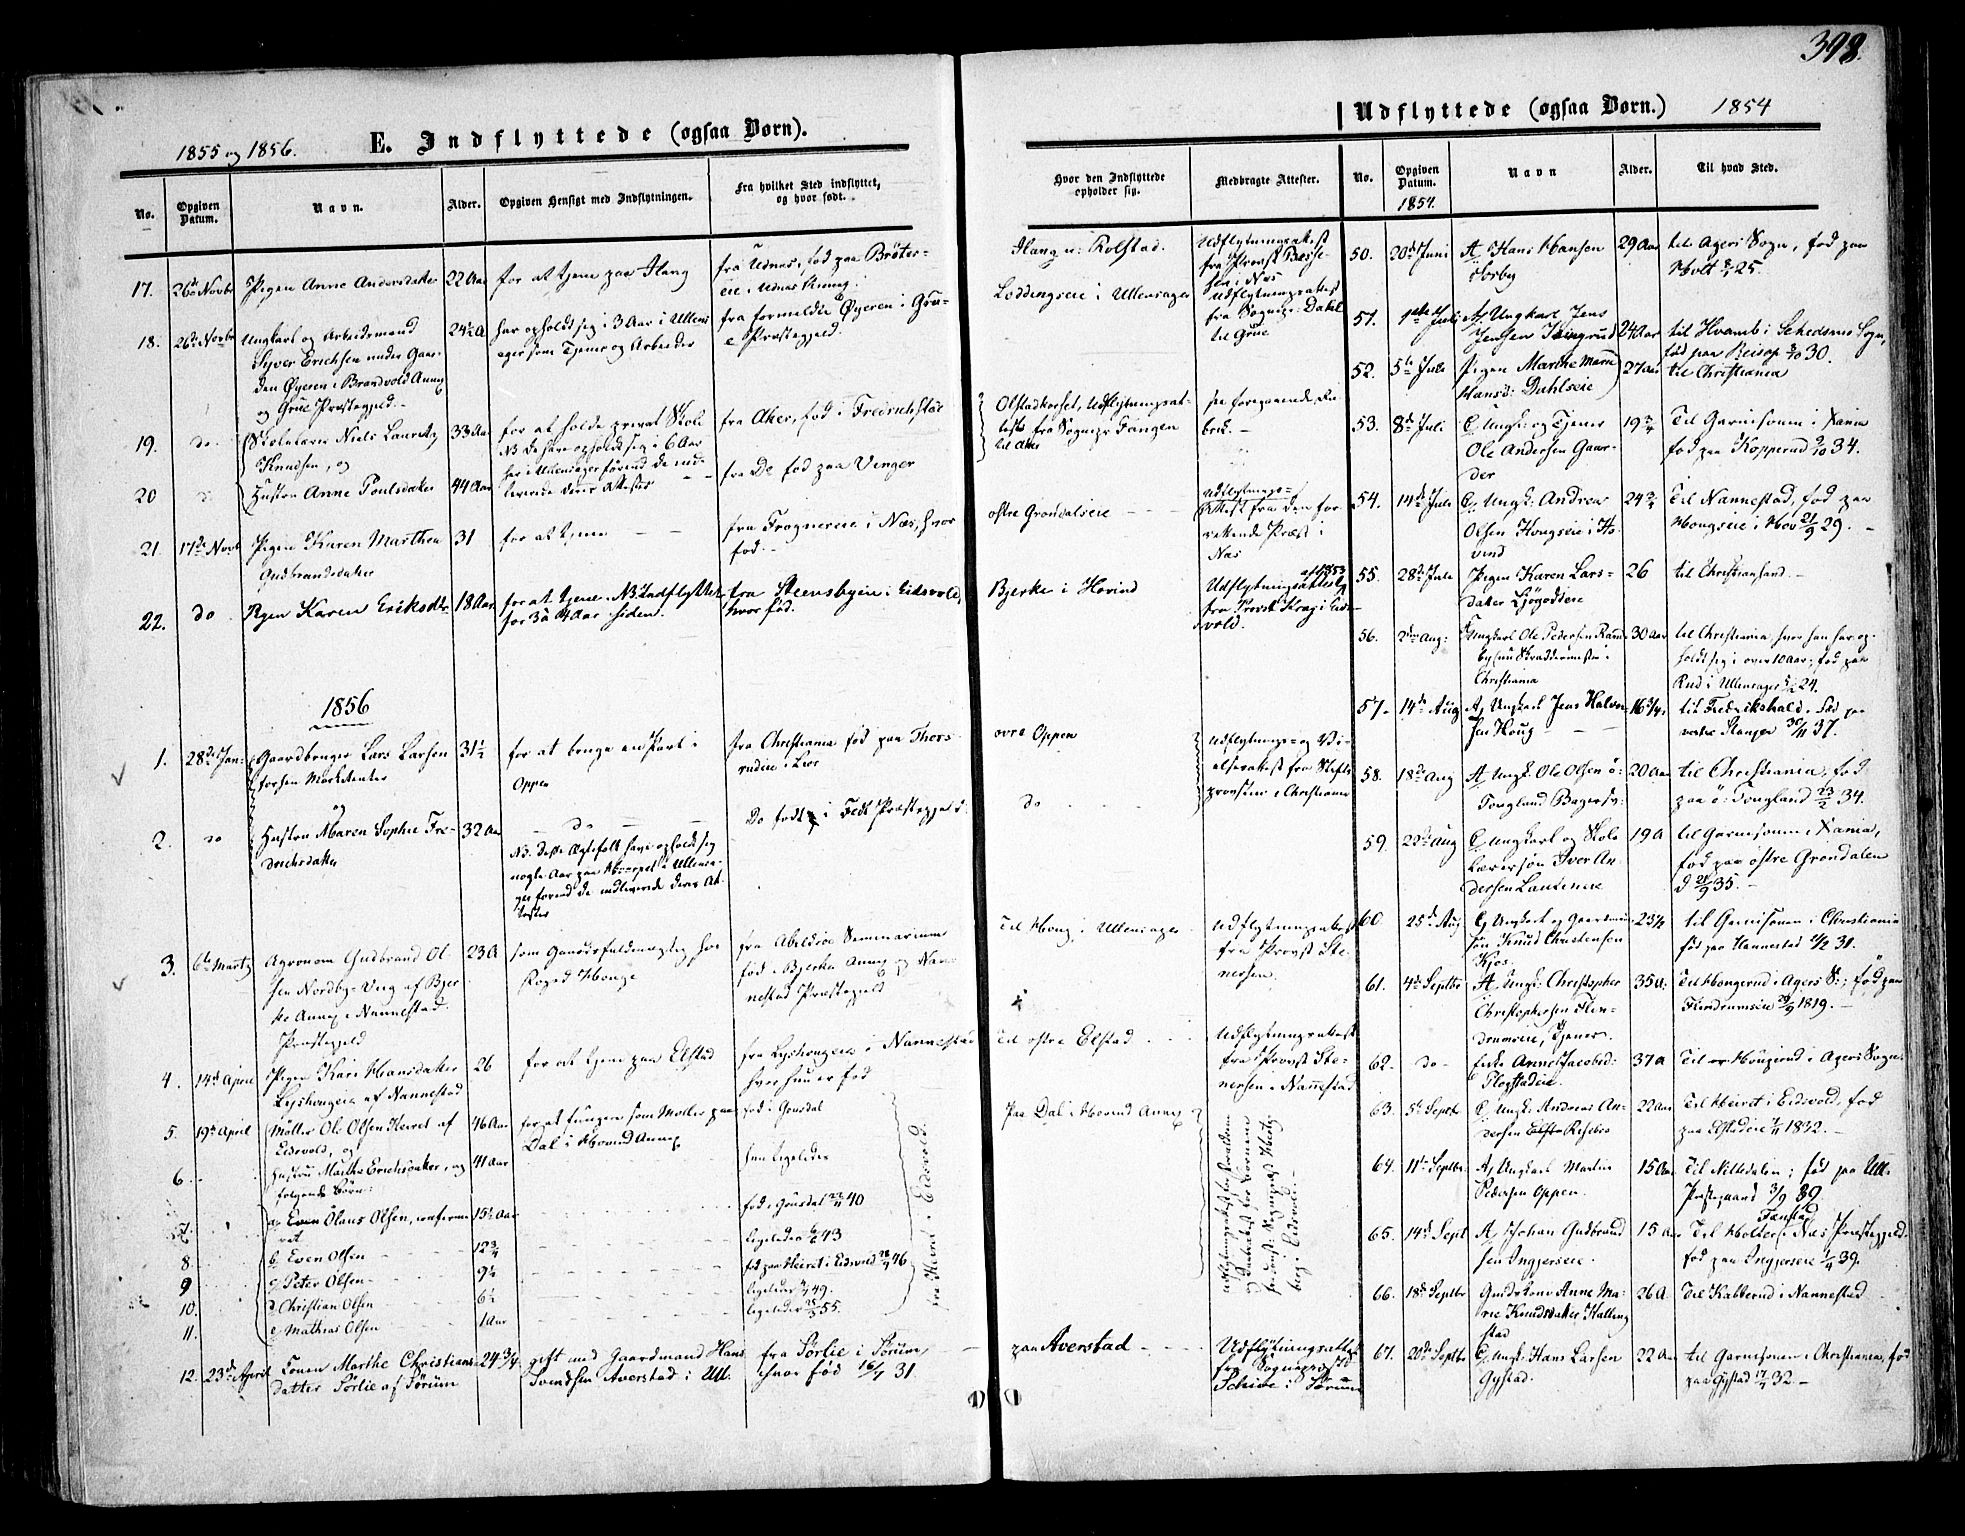 398.
1855 og 1856.
E. Indflyttede (ogsaa Børn).
No.
Opgiven Datum.
Navn.
Alder.
Opgiven Hensigt med Indflytningen.
Fra hvilket Sted indflyttet, og hvor født.
Hvor den Indflyttede opholder sig.
Medbragte Attester.
17. 26de Novbr Pigen Anne Andersdatter 22 Aar for at tjene paa Ilang
fra Udnæs, fød paa Brøter-
eie i Udnæs Annex.
Ilang u: Rolstad.
Udflytningsattest
fra Provst
i Næs
18. 26de Novbr Ungkarl og Arbeidsmand
Syver Erichsen under Gaar-
den Øyeren i Brandvold Annex
og Grue Præstegjeld.
24½ A
har opholdt sig i 3 Aar i Ullens
ager som Tjener og Arbeider
fra formeldte Øyeren i Gru-
e Præstegjeld.
Loddingseie i Ullensager
Udflytningsattest
fra Sognepr: Dahl
til Grue
19. do Skolelærer Niels Lauritz
Knudsen, og
33 Aar
for at holde privat Skole
NB De have opholdt sig i 6 Aar
her i Ullensager førend de ind-
leverede deres Attester
fra Aker, fød i Fredrikstad
Olstadkorset, Udflytningsat-
test fra Sognepr Fangen
til Aker
see foregaaende
20 do Hustru Anne Poulsdatter 44 Aar
fra Do fød paa Vinger
21 17de Novb Pigen Karen Marthea
Gudbrandsdatter
31 for at tjene
fra Fragnereie i Næs, hvor
fød.
østre Grøndalseie
Udflytnings-
Attest fra den for-
rettende Præst i
Næs
22. do Pigen Karen Eriksdtr 18 Aar
for at tjene. NB Indflyttet
for 3 à 4 Aar siden.
fra Steensbyen i Eidsvold,
hvor fød.
Bjerke i Hovind
Udflytningsattest
af 1853
fra Provst Krag i Eids-
vold.
1856
1. 28de Jan: Gaardbruger Lars Larsen
31½ for at bruge en Part i
Oppen
fra Christiania fød paa Thors-
rudeie i Lier
øvre Oppen
Udflytnings- og Vi-
elsesattest fra Stifts-
provsten i Christiania
og
2. do Hustru Maren Sophie Fre-
driksdatter
32 Aar
do
NB. dette Ægtefolk have opholdt sig
nogle Aar paa i Ullensa-
ger førend de indleverede deres At-
tester
Do født i Fedt Præstegjeld
do
3. 6te Martz Agronom Gudbrand Ol-
sen Nordby-Eng af Bjer-
ke Annex i Nannestad
Præstegjeld
23 A
som Gaardsfuldmægtig hos
Foged Houge
fra Abeldsøe Seminarium
fød i Bjerke Annex og Nan-
nestad Præstegjeld
Til Houg i Ullensager
Udflytningsattest
fra Provst Ste-
nersen.
4. 14de April Pigen Kari Hansdatter
Lyshougeie af Nannestad
26 for at tjene paa Elstad
fra Lyshougeie i Nannestad
hvor hun er fød
Til østre Elstad
Udflytningsattest
fra Provst Ste-
nersen i Nannestad
5. 19de April Møller Ole Olsen Heiret af
Eidsvold, og
46 Aar for at fungere som Møller paa
Dal i Hovind Annex
fød i Gousdal
Paa Dal i Hovind Annex
6 Hustru Marthe Erichsdatter, og
følgende Børn:
41 Aar
hun ligeledes
7. a, Even Olaus Olsen, confirme-
ret
15½ Aar
fød i Gousdal 22/11 40
8 b, Even Olsen 12¾ ligeledes 43
9 c, Peter Olsen 9½ fød paa Heiret i Eidsvold 28/9 46
10. d, Christian Olsen 6½ ligeledes 49.
11. e, Mathias Olsen 1 Aar ligeledes 55.
fra Heiret i Eidsvold.
12. 23de April Konen Marthe Christians-
datter Sørlie af Sørum
24¾ gift med Gaardmand Hans
Svendsen Averstad i Ull.
fra Sørlie i Sørum,
hvor fød 16/7 31.
paa Averstad
Udflytningsattest
fra Sognepræst
Schive i Sørum
Udflyttede (ogsaa Børn.) 1854
No.
Opgiven Datum. 1854.
Navn
Alder.
Til hvad Sted.
50. 20de Juni A, Hans Hansen
29 Aar til Agers Sogn, fød paa
Holt 25.
51. 1ste Juli A, Ungkarl Jens
Jensen
24 Aar til Hvamb i Schedsmo Sogn,
fød paa Reisop 30.
52. 5te Juli Pigen Marthe Marie
Hansd: Dahlseie
27 Aar til Christiania
53. 8de Juli E, Ungk: og Tjener
Ole Andersen Gaar-
der
19¾ Til Garnisonen i Xania
fød paa Kopperud 9/10 34.
54. 14de Juli E, Ungk. Andreas
Olsen Hougseie i Ho-
vind
24¾ Til Nannestad, fød paa
Hougseie i Hov 21/9 29.
55. 28de Juli Pigen Karen Lars-
datter Ljøgodtseie
26 til Christiansand.
56. 2den Aug: Ungkarl Ole Pedersen Ram-
by, nu Skræddermester i
Christiania
30 Aar til Christiania, hvor han har op-
holdt sig i over 10 Aar; fød paa
Rud i Ullensager 24.
57. 14de Aug A, Ungkarl Jens Halvor-
sen Houg
16¾ til Fredrikshald. Fød paa
vestre Hanger 30/11 37.
58. 18de Aug A, Ungk. Ole Olsen ø:
Tongland Bagersv:
20 Aar til Christiania, fød
paa ø: Tongland 23/2 34.
59. 22de Aug E, Ungkarl og Skole
lærersøn Iver An-
dersen
19 A til Garnisonen i Xania,
fød paa østre Grøndalen
d 21/9 35.
60 25de Aug E, Ungkarl og Gaardmands-
søn Knud Christensen
Kjos.
23½ til Garnisonen i Christiania
fød paa Hannestad 31.
61. 4de Septbr A, Ungk. Christopher
Christophersen Flen-
drumseie, Tjener.
35 A. Til Hougerud i Agers S:; fød paa
Flendrumseie 29/9 1819.
62. do Anne Jacobsd:
Flogstadeie.
37 A Til Hougerud i Agers Sogn.
63. 5te Septbr E, Ungk. Andreas An-
dersen Risebro
22 Aar Til Heiret i Eidsvold, fød
paa Elstadeie 1832.
64. 11te Septbr A, Ungkarl Martin
Pedersen Oppen.
15 Aar Til Nittedalen; fød paa Ull.
Præstegaard 3/9 39.
65. 14de Sept A, Johan Gudbrand-
sen Ingjerseie.
15 Aar Til Holter i Næs Præstegjeld.
fød paa Ingjerseie 1/4 39.
66. 18de Septbr Gaardskone Anne Ma-
rie Knudsdatter Halling
stad
26 A. Til Kabberud i Nannestad
67. 20de Septbr E, Ungk: Hans Larsen
Gystad.
22 Aar til Garnisonen i Christiania, fød
paa Gystad 17/4 32.